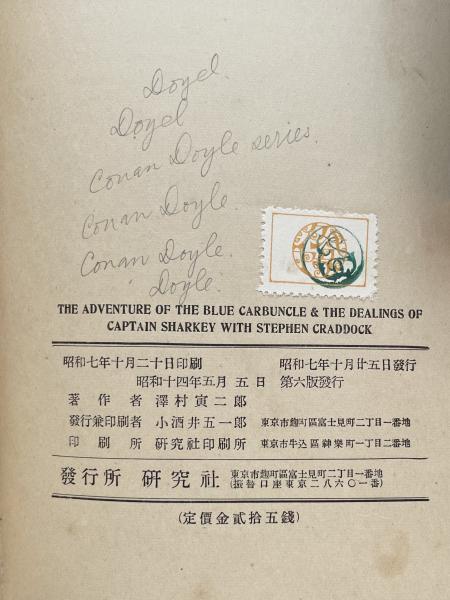 Doyel.
Doyel
Conan Doyle series.
Conan Doyle.
Conan Doyle.
Doyle.
THE ADVENTURE OF THE BLUE CARBUNCLE & THE DEALINGS OF
CAPTAIN SHARKEY WITH STEPHEN CRADDOCK
昭和七年十月二十日印刷 昭和七年十月廿五日發行
昭和十四年五月五日 第六版發行
著作者 澤村寅二郎
發行兼印刷者 小酒井五一郎 東京市麴町區富士見町二丁目一番地
印刷所 研究社印刷所 東京市牛込區神樂町一丁目二番地
發行所 研究社 東京市麴町區富士見町二丁目一番地
(振替口座東京二八六〇一番)
(定價金貳拾五錢)